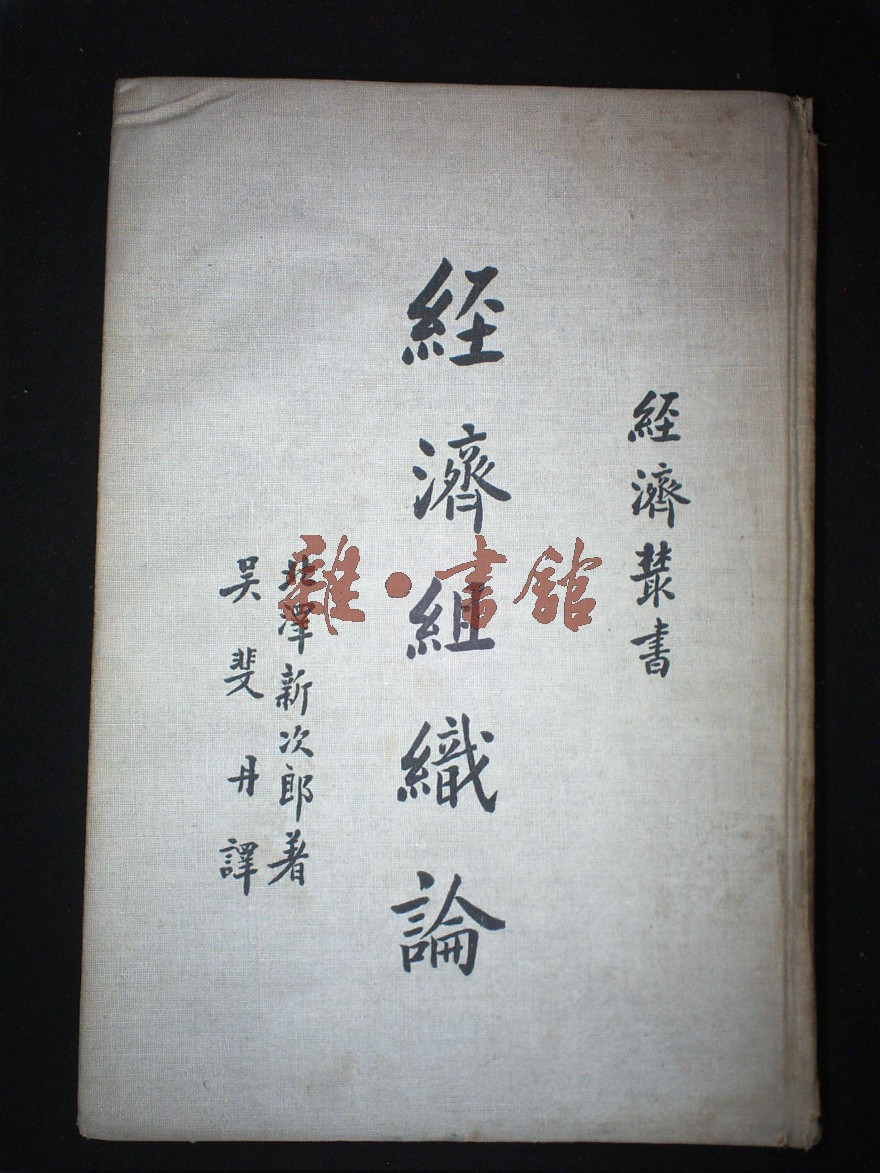 經濟叢書
經濟組織論
北澤新次郎著
吴斐丹譯
雜·書館